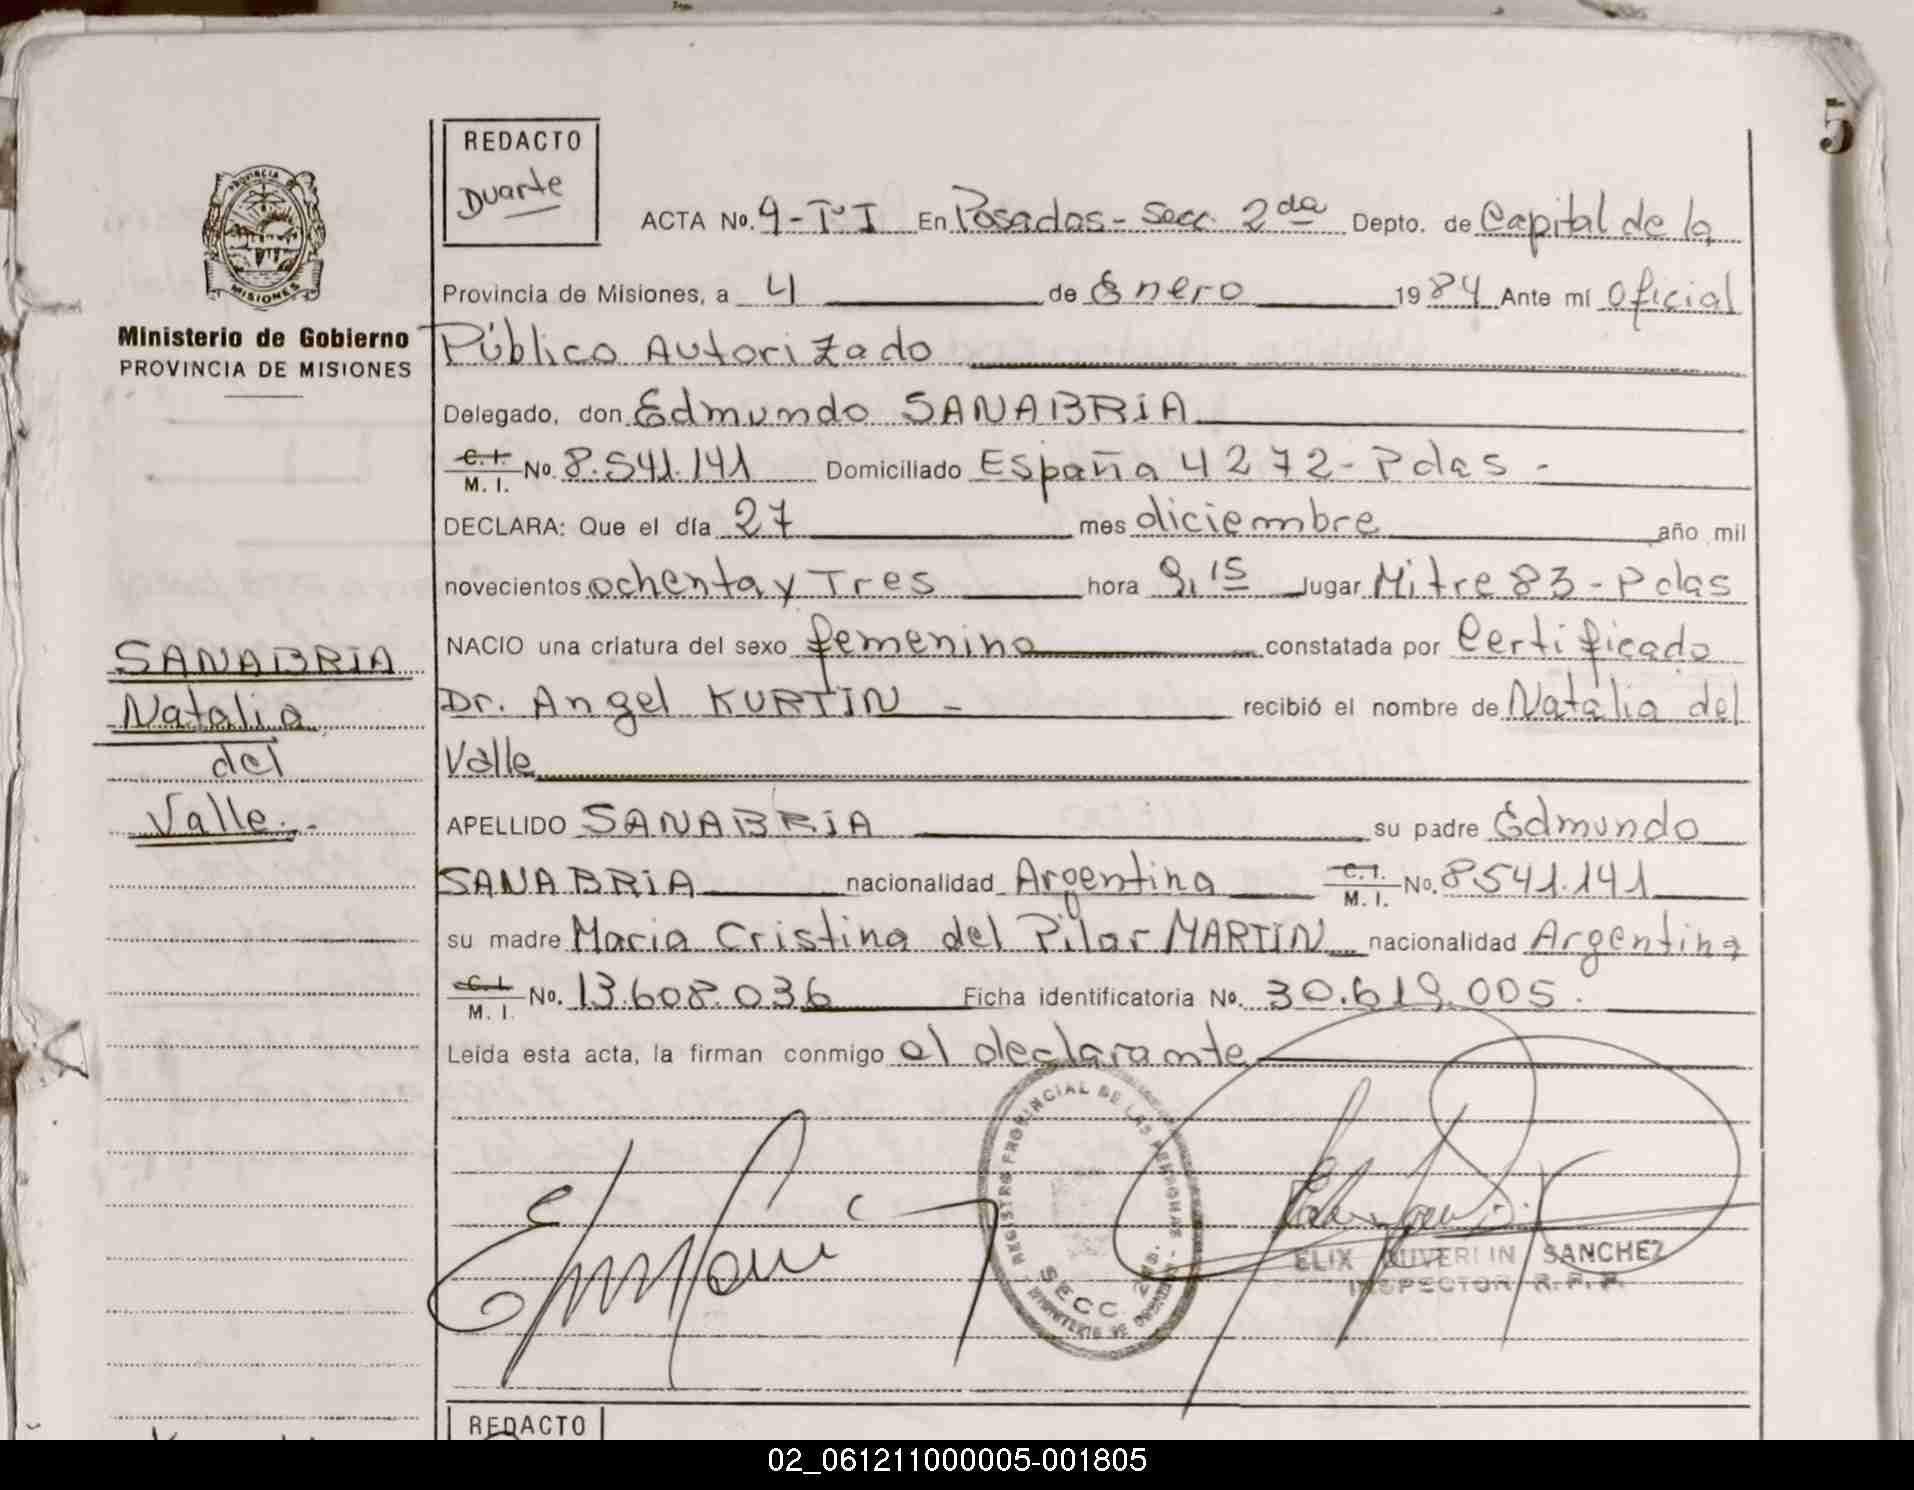 5
REDACTO
Duarte
PROVINCIA
MISIONES
Ministerio de Gobierno
PROVINCIA DE MISIONES
ACTA No. 9-TºI En Posadas - Secc. 2da Depto. de Capital de la
Provincia de Misiones, a 4 de Enero 1984 Ante mí Oficial
Público Autorizado
Delegado, don Edmundo SANABRIA
C.I. M. I. No. 8.541.141 Domiciliado España 4272 - Pdas -
DECLARA: Que el día 27 mes diciembre año mil
novecientos ochenta y Tres hora 9,15 lugar Mitre 83 - Pdas
NACIO una criatura del sexo femenino constatada por Certificado
Dr. Angel KURTIN - recibió el nombre de Natalia del
Valle
APELLIDO SANABRIA su padre Edmundo
SANABRIA nacionalidad Argentina C.I. M. I. No. 8.541.141
su madre Maria Cristina del Pilar MARTIN nacionalidad Argentina
C.I. M. I. No. 13.608.036 Ficha identificatoria No. 30.619.005.
Leída esta acta, la firman conmigo el declarante
SANABRIA
Natalia
del
Valle.-
REGISTRO PROVINCIAL DE LAS PERSONAS
SECC. 2da.
MINISTERIO DE GOBIERNO
SANCHEZ
INSPECTOR R. P. P.
REDACTO
02_061211000005-001805